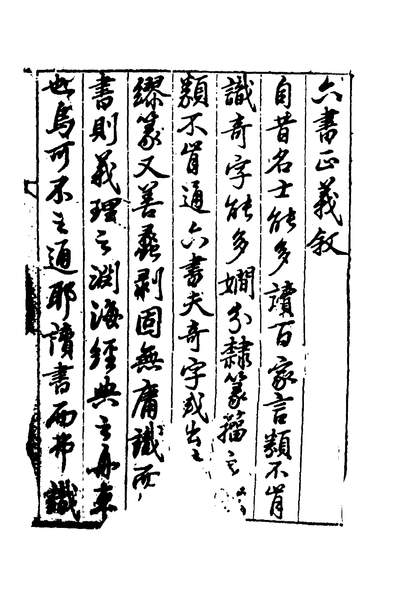 六書正義叙
自昔名士能多讀百家言類不肯
識奇字能多嫻分隸篆籀之
類不肯通六書夫奇字或出
繆篆又善蟲剥固無庸識而
書則義理之淵海經典之舟車
也烏可不之通耶讀書而弗識